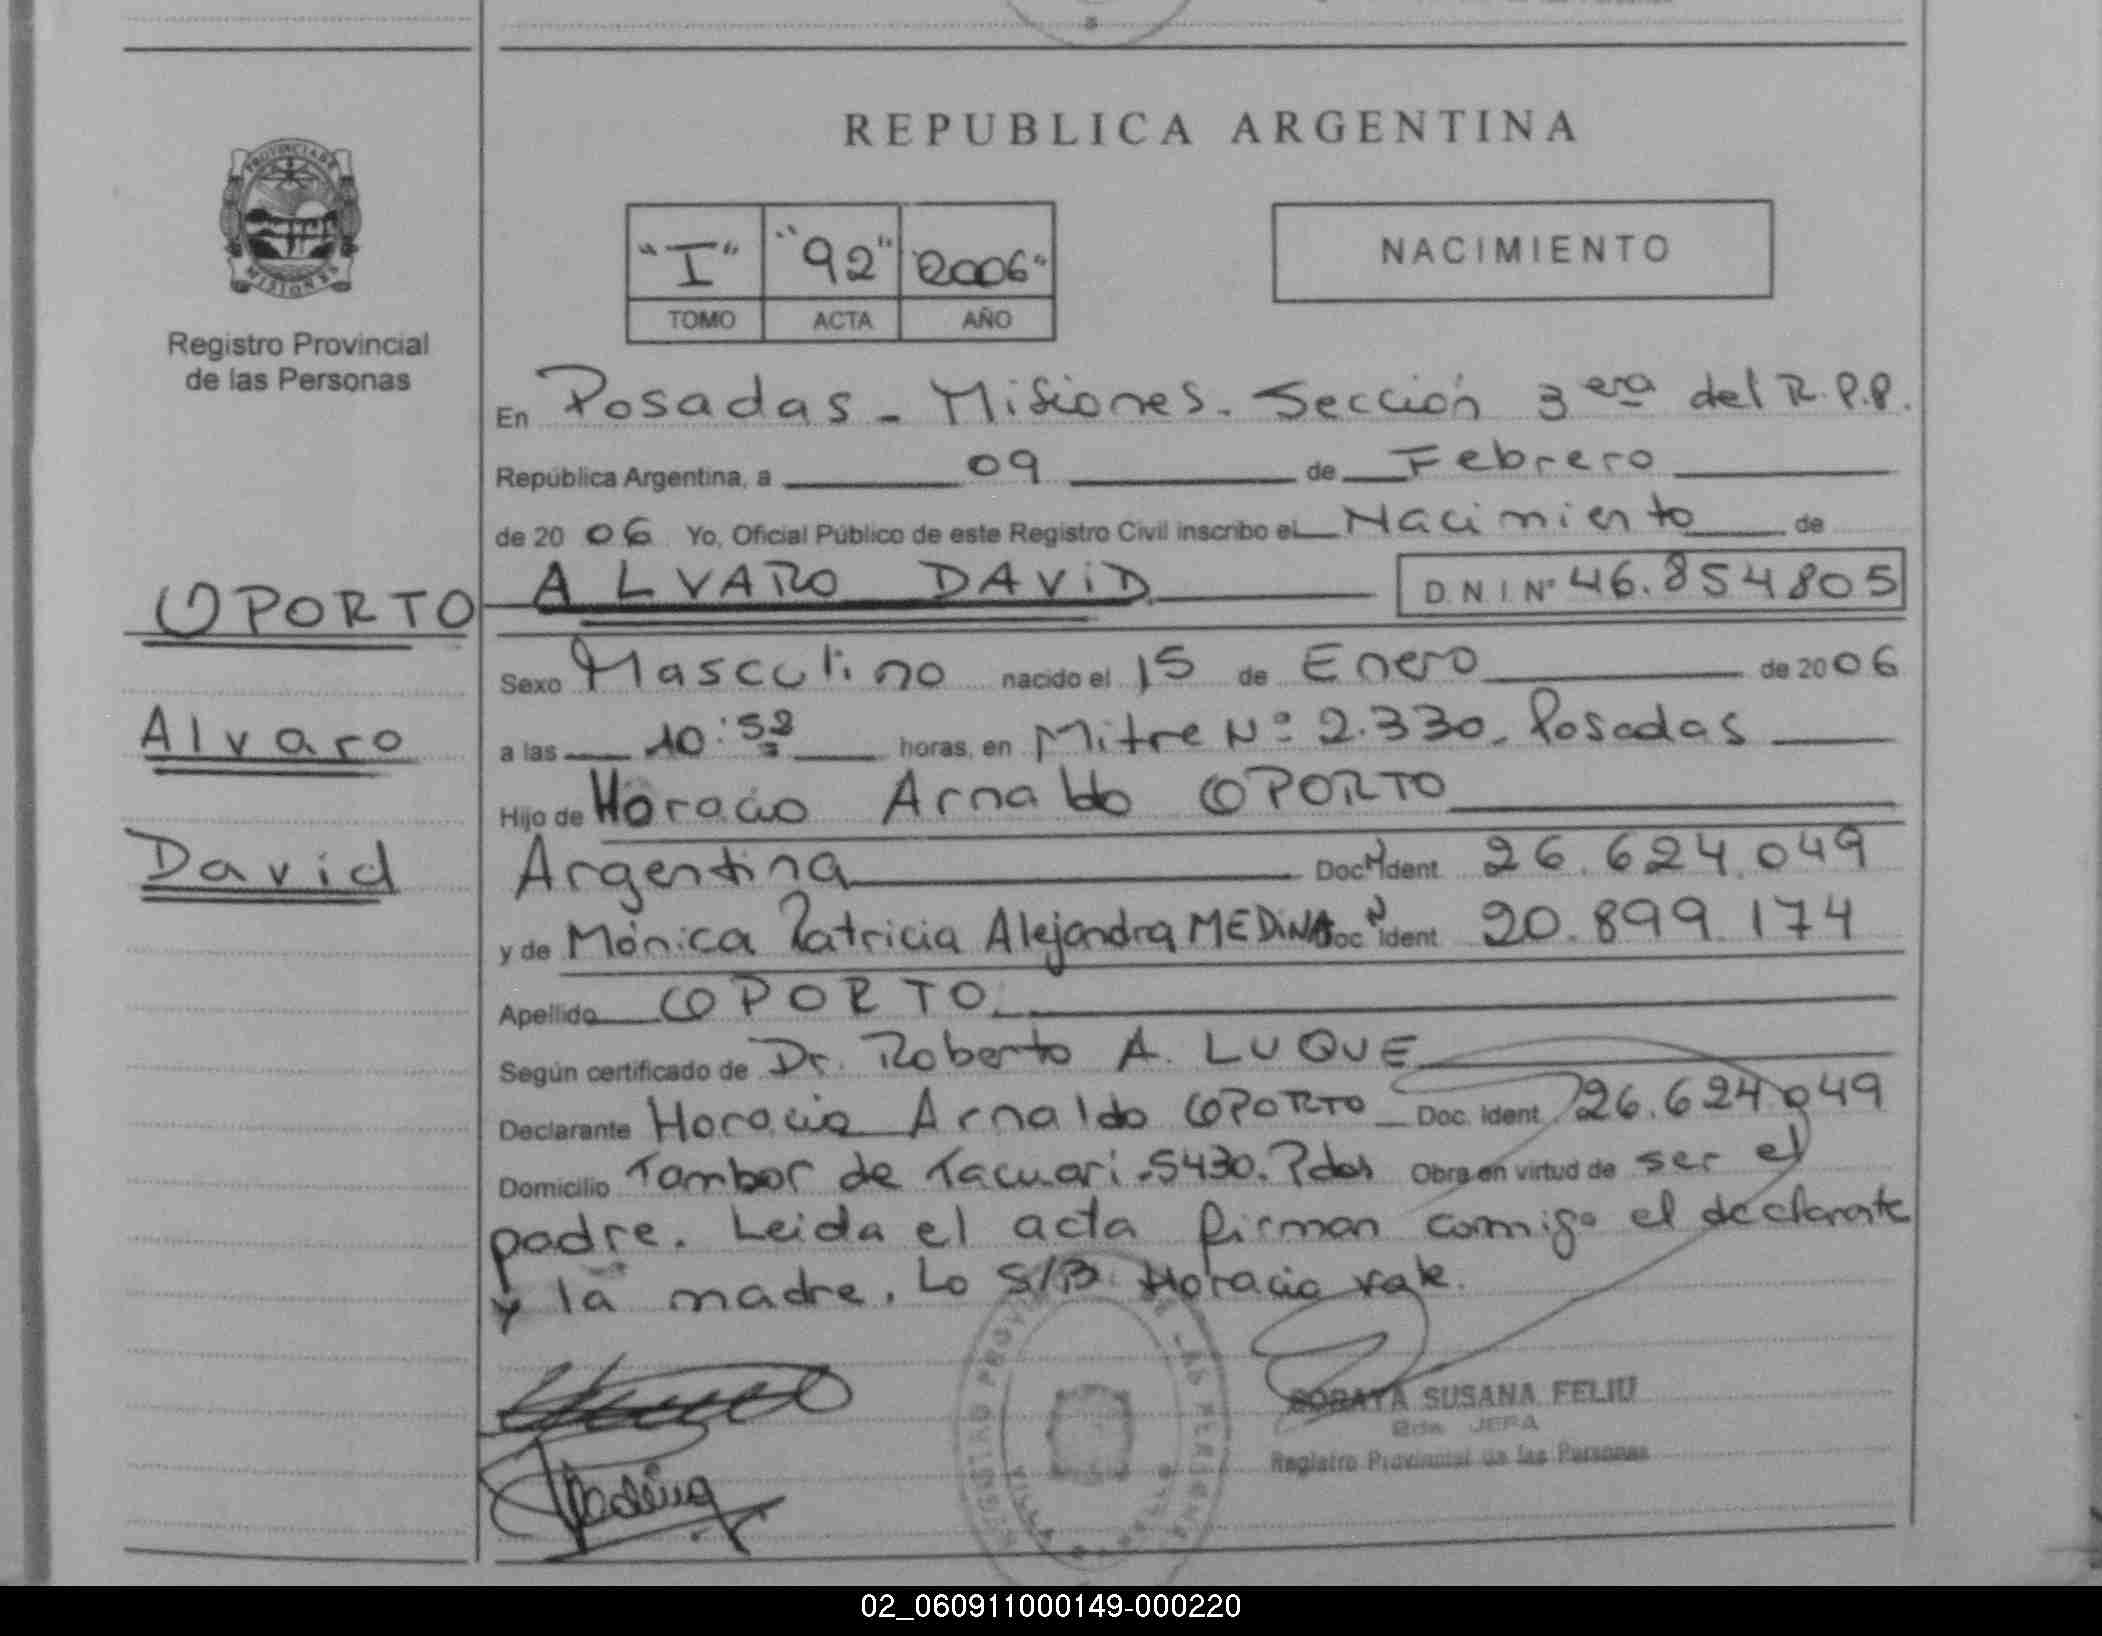 REPUBLICA ARGENTINA
PROVINCIA DE
MISIONES
Registro Provincial
de las Personas
"I" "92" "2006"
TOMO ACTA AÑO
NACIMIENTO
En Posadas - Misiones. Sección 3era del R.P.P.
República Argentina, a 09 de Febrero
de 20 06 Yo, Oficial Público de este Registro Civil inscribo el Nacimiento de
OPORTO ALVARO DAVID D.N.I.Nº 46.854805
Sexo Masculino nacido el 15 de Enero de 20 06
Alvaro
a las 10:52 horas, en Mitre Nº 2.330. Posadas
Hijo de Horacio Arnaldo OPORTO
David
Argentina Doc N Ident 26.624.049
y de Mónica Patricia Alejandra MEDINA Doc N Ident 20.899.174
Apellido OPORTO
Según certificado de Dr. Roberto A. LUQUE
Declarante Horacio Arnaldo OPORTO Doc. Ident. 26.624.049
Domicilio Tambor de Tacuari .5430. Pdas Obra en virtud de ser el
padre. Leida el acta firman comigo el declarante
y la madre. Lo S/B Horacio vale.
SORAYA SUSANA FELIU
2da JEFA
Registro Provincial de las Personas
02_060911000149-000220